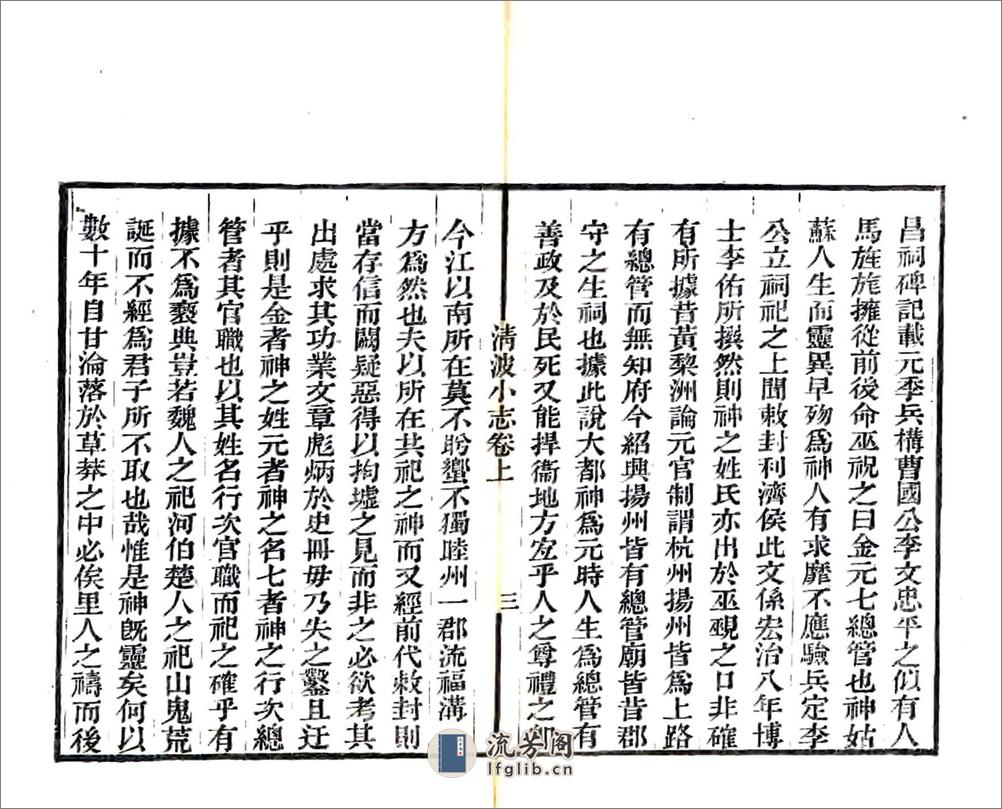 昌祠碑記載元季兵構曹國公李文忠平之似有人
馬旌旄擁從前後命巫祝之曰金元七總管也神姑
蘇人生而靈異早歿爲神人有求靡不應驗兵定李
公立祠祀之上聞敕封利濟侯此文係宏治八年博
士李佑所撰然則神之姓氏亦出於巫覡之口非確
有所據昔黃黎洲論元官制謂杭州揚州皆爲上路
有總管而無知府今紹興揚州皆有總管廟皆昔郡
守之生祠也據此說大都神爲元時人生爲總管有
善政及於民死又能捍衞地方宜乎人之尊禮之
清波小志卷上
三
今江以南所在莫不肹蠁不獨睦州一郡流福溝
方爲然也夫以所在共祀之神而又經前代敕封則
當存信而闕疑惡得以拘墟之見而非之必欲考其
出處求其功業文章彪炳於史冊毋乃失之鑿且迂
乎則是金者神之姓元者神之名七者神之行次總
管者其官職也以其姓名行次官職而祀之確乎有
據不爲褻典豈若魏人之祀河伯楚人之祀山鬼荒
誕而不經爲君子所不取也哉惟是神旣靈矣何以
數十年自甘淪落於草莽之中必俟里人之禱而後
流芳閣
lfglib.cn